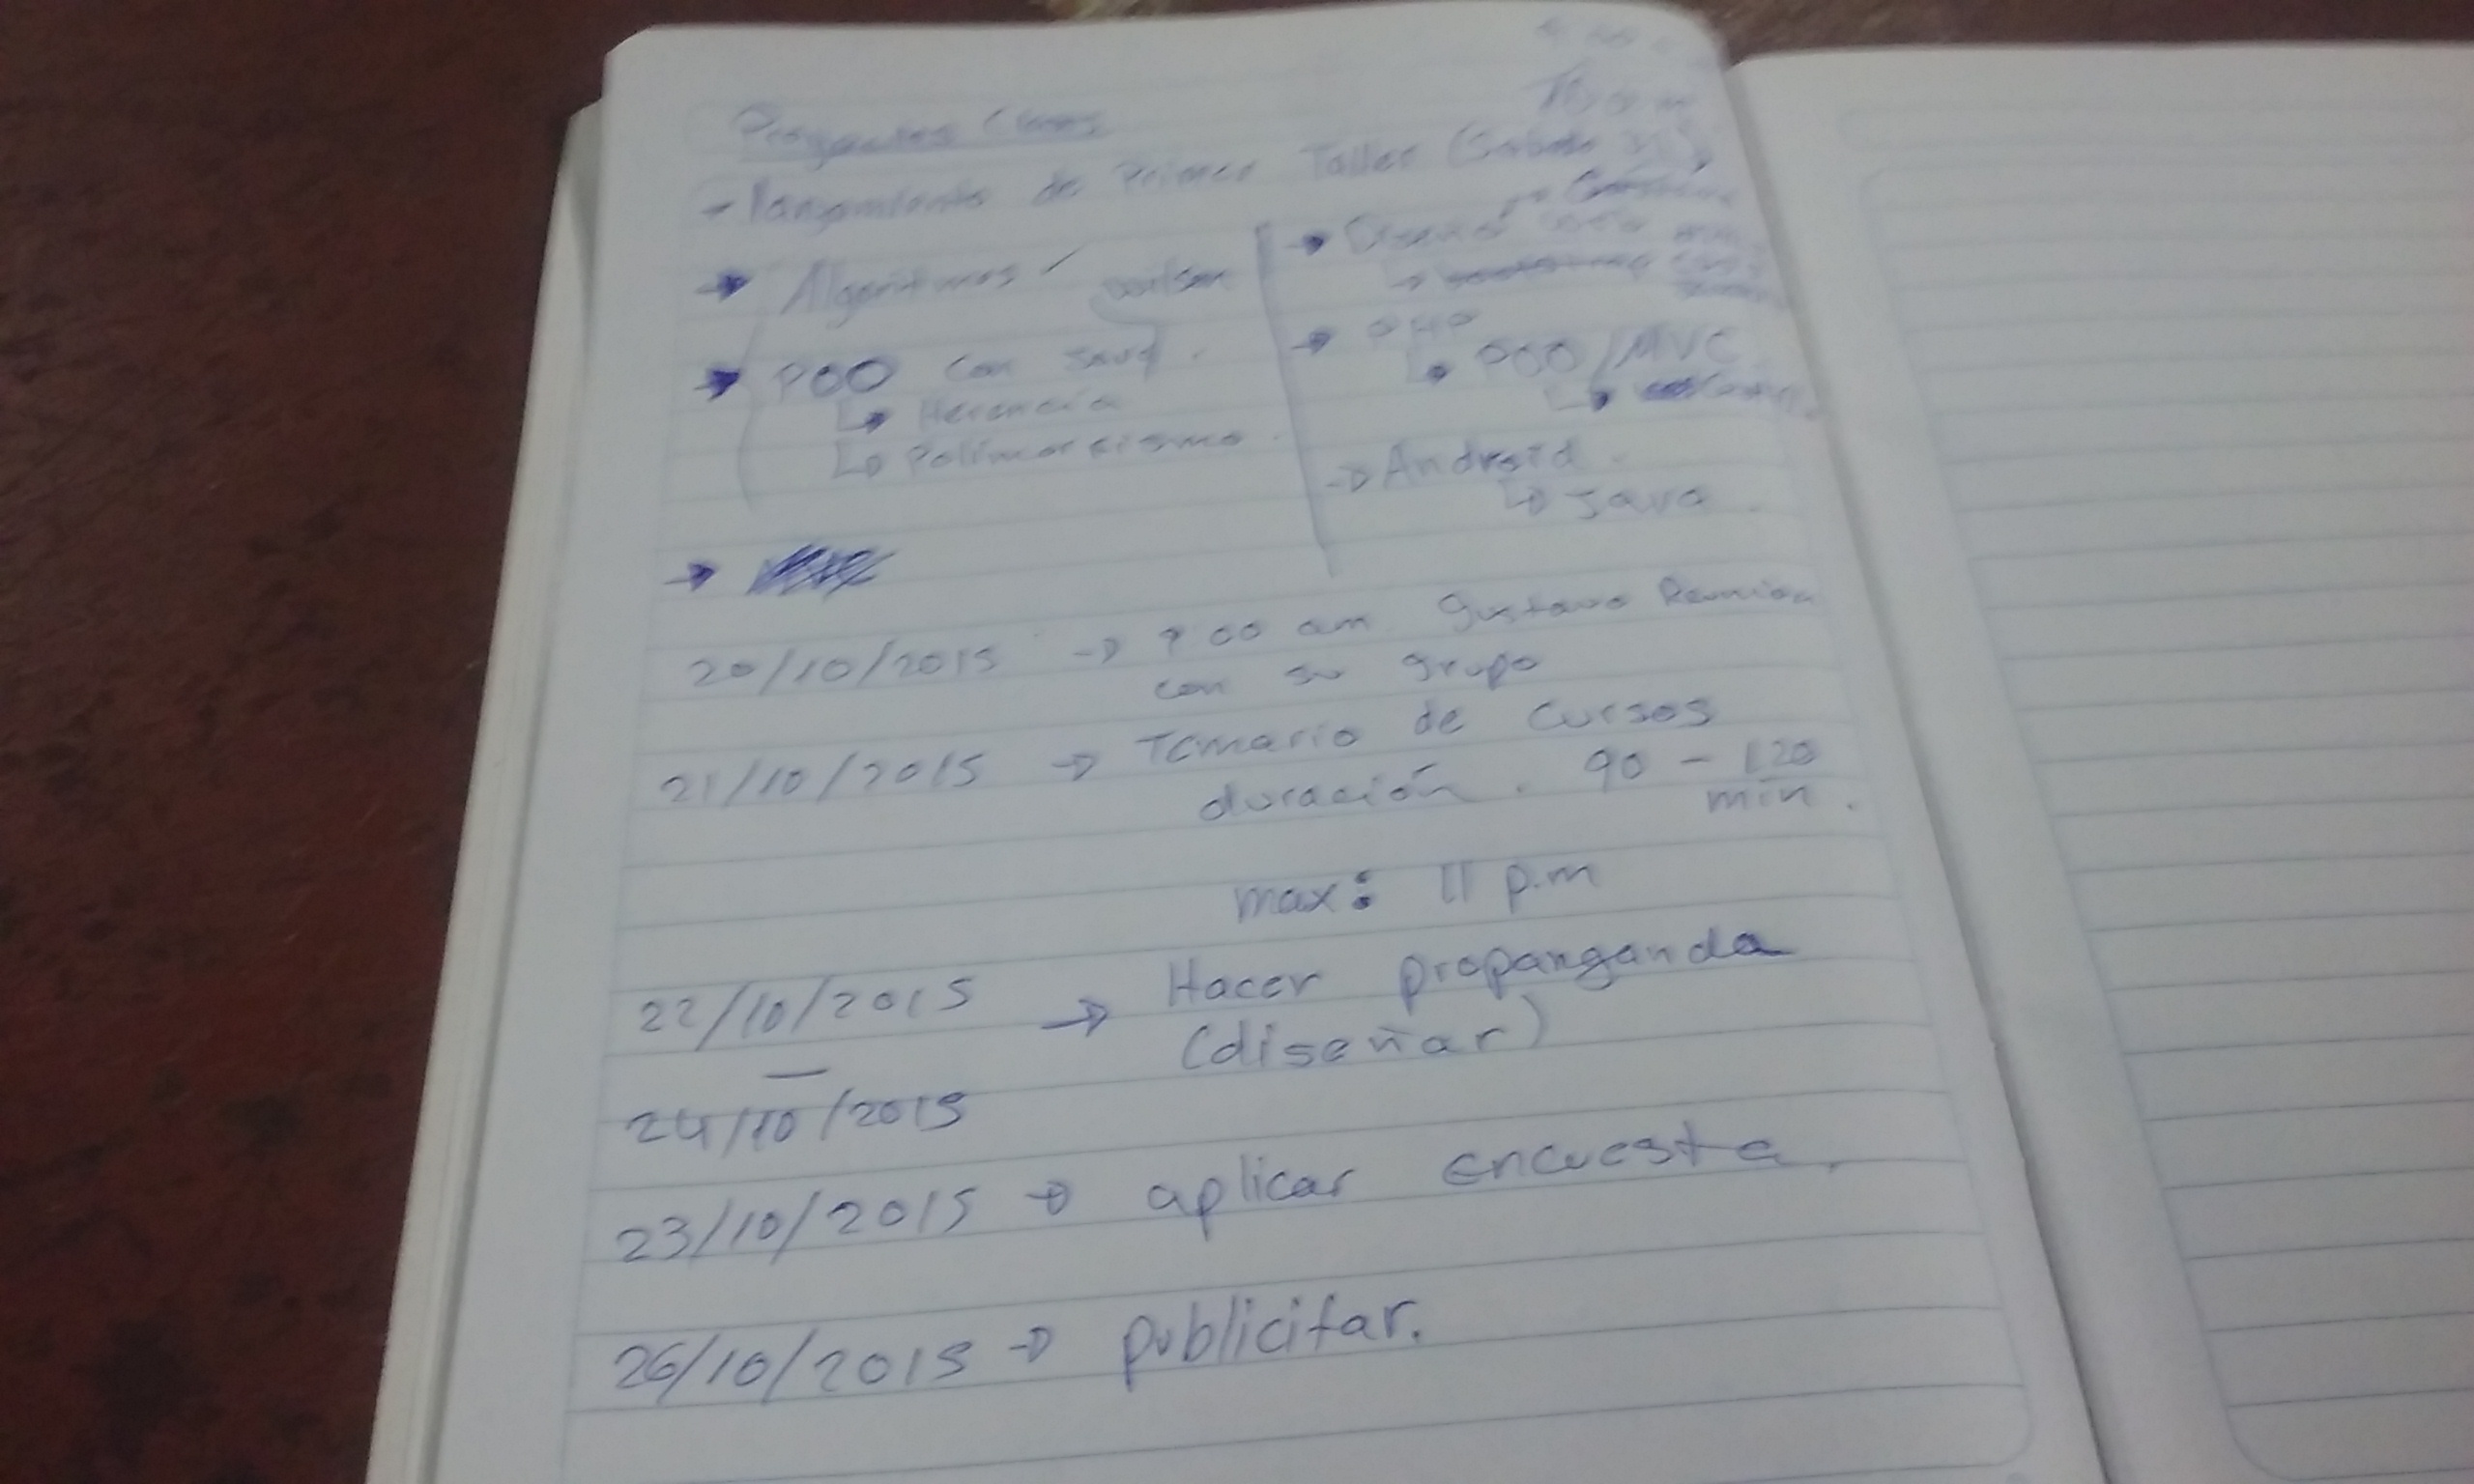 Proyectos Clases
- Lanzamiento de Primer Taller (Sabado
→ Algoritmos
→ POO con Java.
↳ Herencia
↳ Polimorfismo.
→ Diseño
→ PHP
↳ POO / MVC
→ Android.
↳ Java.
20/10/2015 → 9 00 am Gustavo Reunion
con su grupo
21/10/2015 → Temario de Cursos
duración. 90 - 120
min.
max: 11 p.m
22/10/2015 → Hacer propanganda
(diseñar)
—
24/10/2015
23/10/2015 → aplicar encuesta.
26/10/2015 → publicitar.